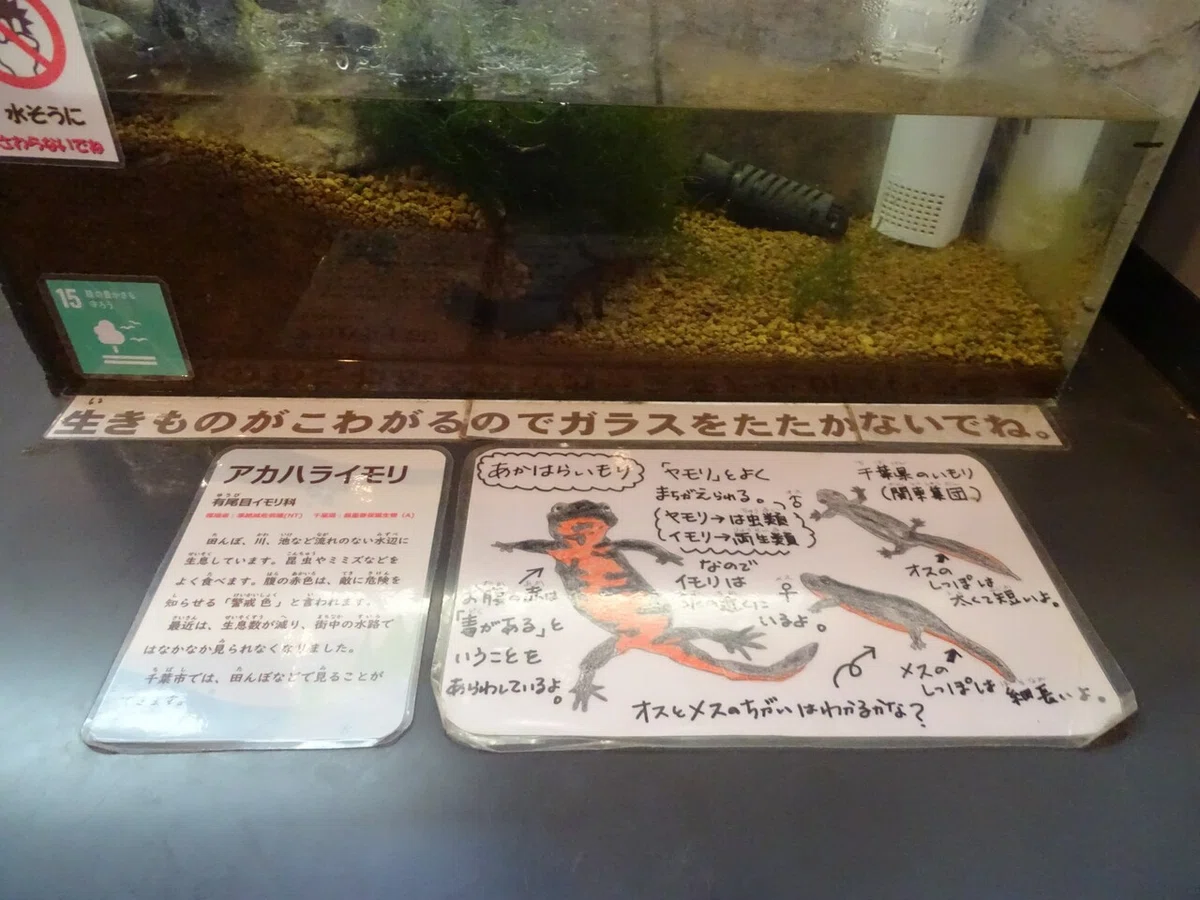 水そうに
さわらないでね
15 陸の豊かさも
守ろう
生きものがこわがるのでガラスをたたかないでね。
い
アカハライモリ
ゆうび
有尾目イモリ科
環境省:準絶滅危惧種(NT) 千葉県:最重要保護生物(A)
田んぼ、川、池など流れのない水辺に
生息しています。昆虫やミミズなどを
よく食べます。腹の赤色は、敵に危険を
知らせる「警戒色」と言われます。
最近は、生息数が減り、街中の水路で
はなかなか見られなくなりました。
千葉市では、田んぼなどで見ることが
できます。
あかはらいもり
お腹の赤は
「毒がある」と
いうことを
あらわしているよ。
「ヤモリ」とよく
まちがえられる。
ヤモリ→は虫類
イモリ→両生類
なので
イモリは
水の近くに
いるよ。
千葉県のいもり
(関東集団)
♂
オスの
しっぽは
太くて短いよ。
♀
メスの
しっぽは細長いよ。
オスとメスのちがいはわかるかな?